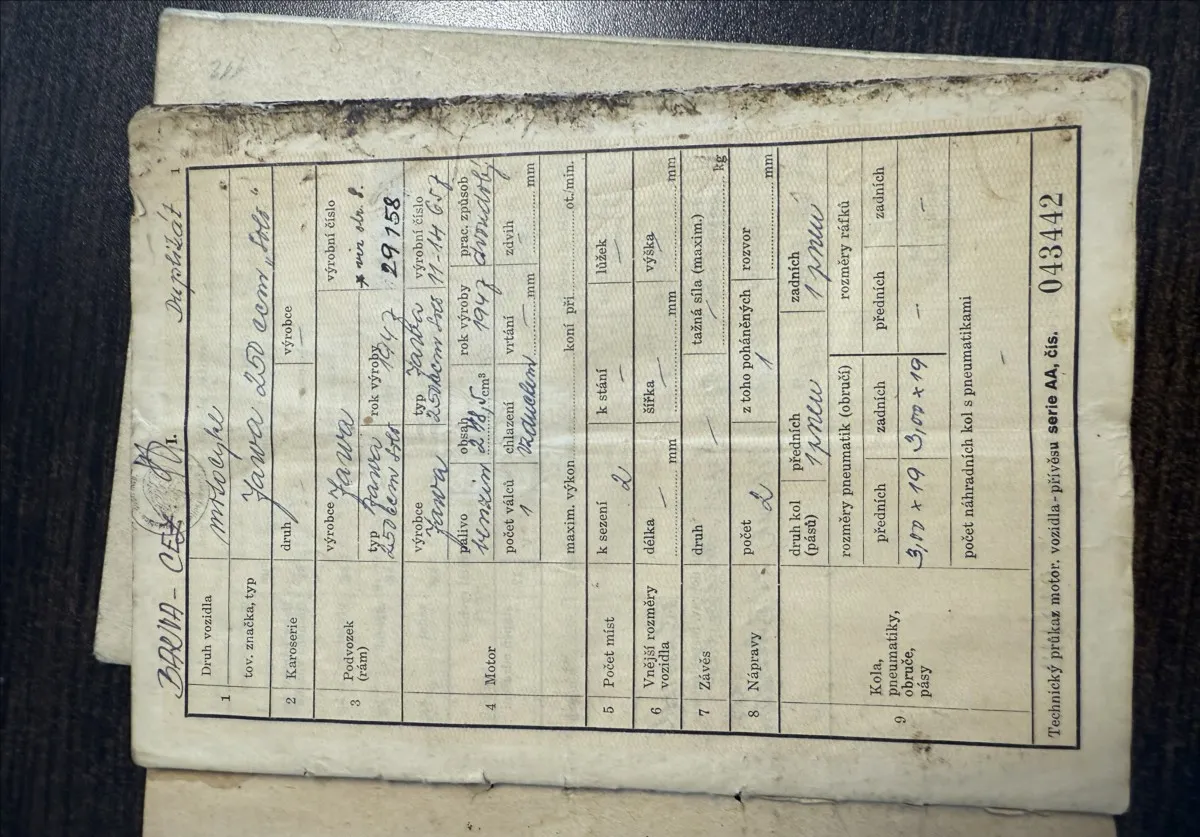 Duplikát 1
BARVA -
I.
1 Druh vozidla motocykl
tov. značka, typ Jawa 250 ccm „Solo“
2 Karoserie druh — výrobce —
3 Podvozek (rám) výrobce Jawa výrobní číslo * viz str. 8.
typ Jawa 250 ccm Solo rok výroby 1947 29158
4 Motor výrobce Jawa typ Jawa 250 ccm Solo výrobní číslo 11-14 657
palivo benzin obsah 248,5 cm³ rok výroby 1947 prac. způsob dvoudobý
počet válců 1 chlazení vzduchem vrtání — mm zdvih — mm
maxim. výkon koní při ot./min.
5 Počet míst k sezení 2 k stání — lůžek —
6 Vnější rozměry vozidla délka — mm šířka — mm výška — mm
7 Závěs druh — tažná síla (maxim.) — kg
8 Nápravy počet 2 z toho poháněných 1 rozvor mm
9 Kola, pneumatiky, obruče, pásy
druh kol (pásů) předních 1 pneu zadních 1 pneu
rozměry pneumatik (obručí) rozměry ráfků
předních zadních předních zadních
3,00 x 19 3,00 x 19 — —
počet náhradních kol s pneumatikami —
Technický průkaz motor. vozidla - přívěsu serie AA, čís. 043442